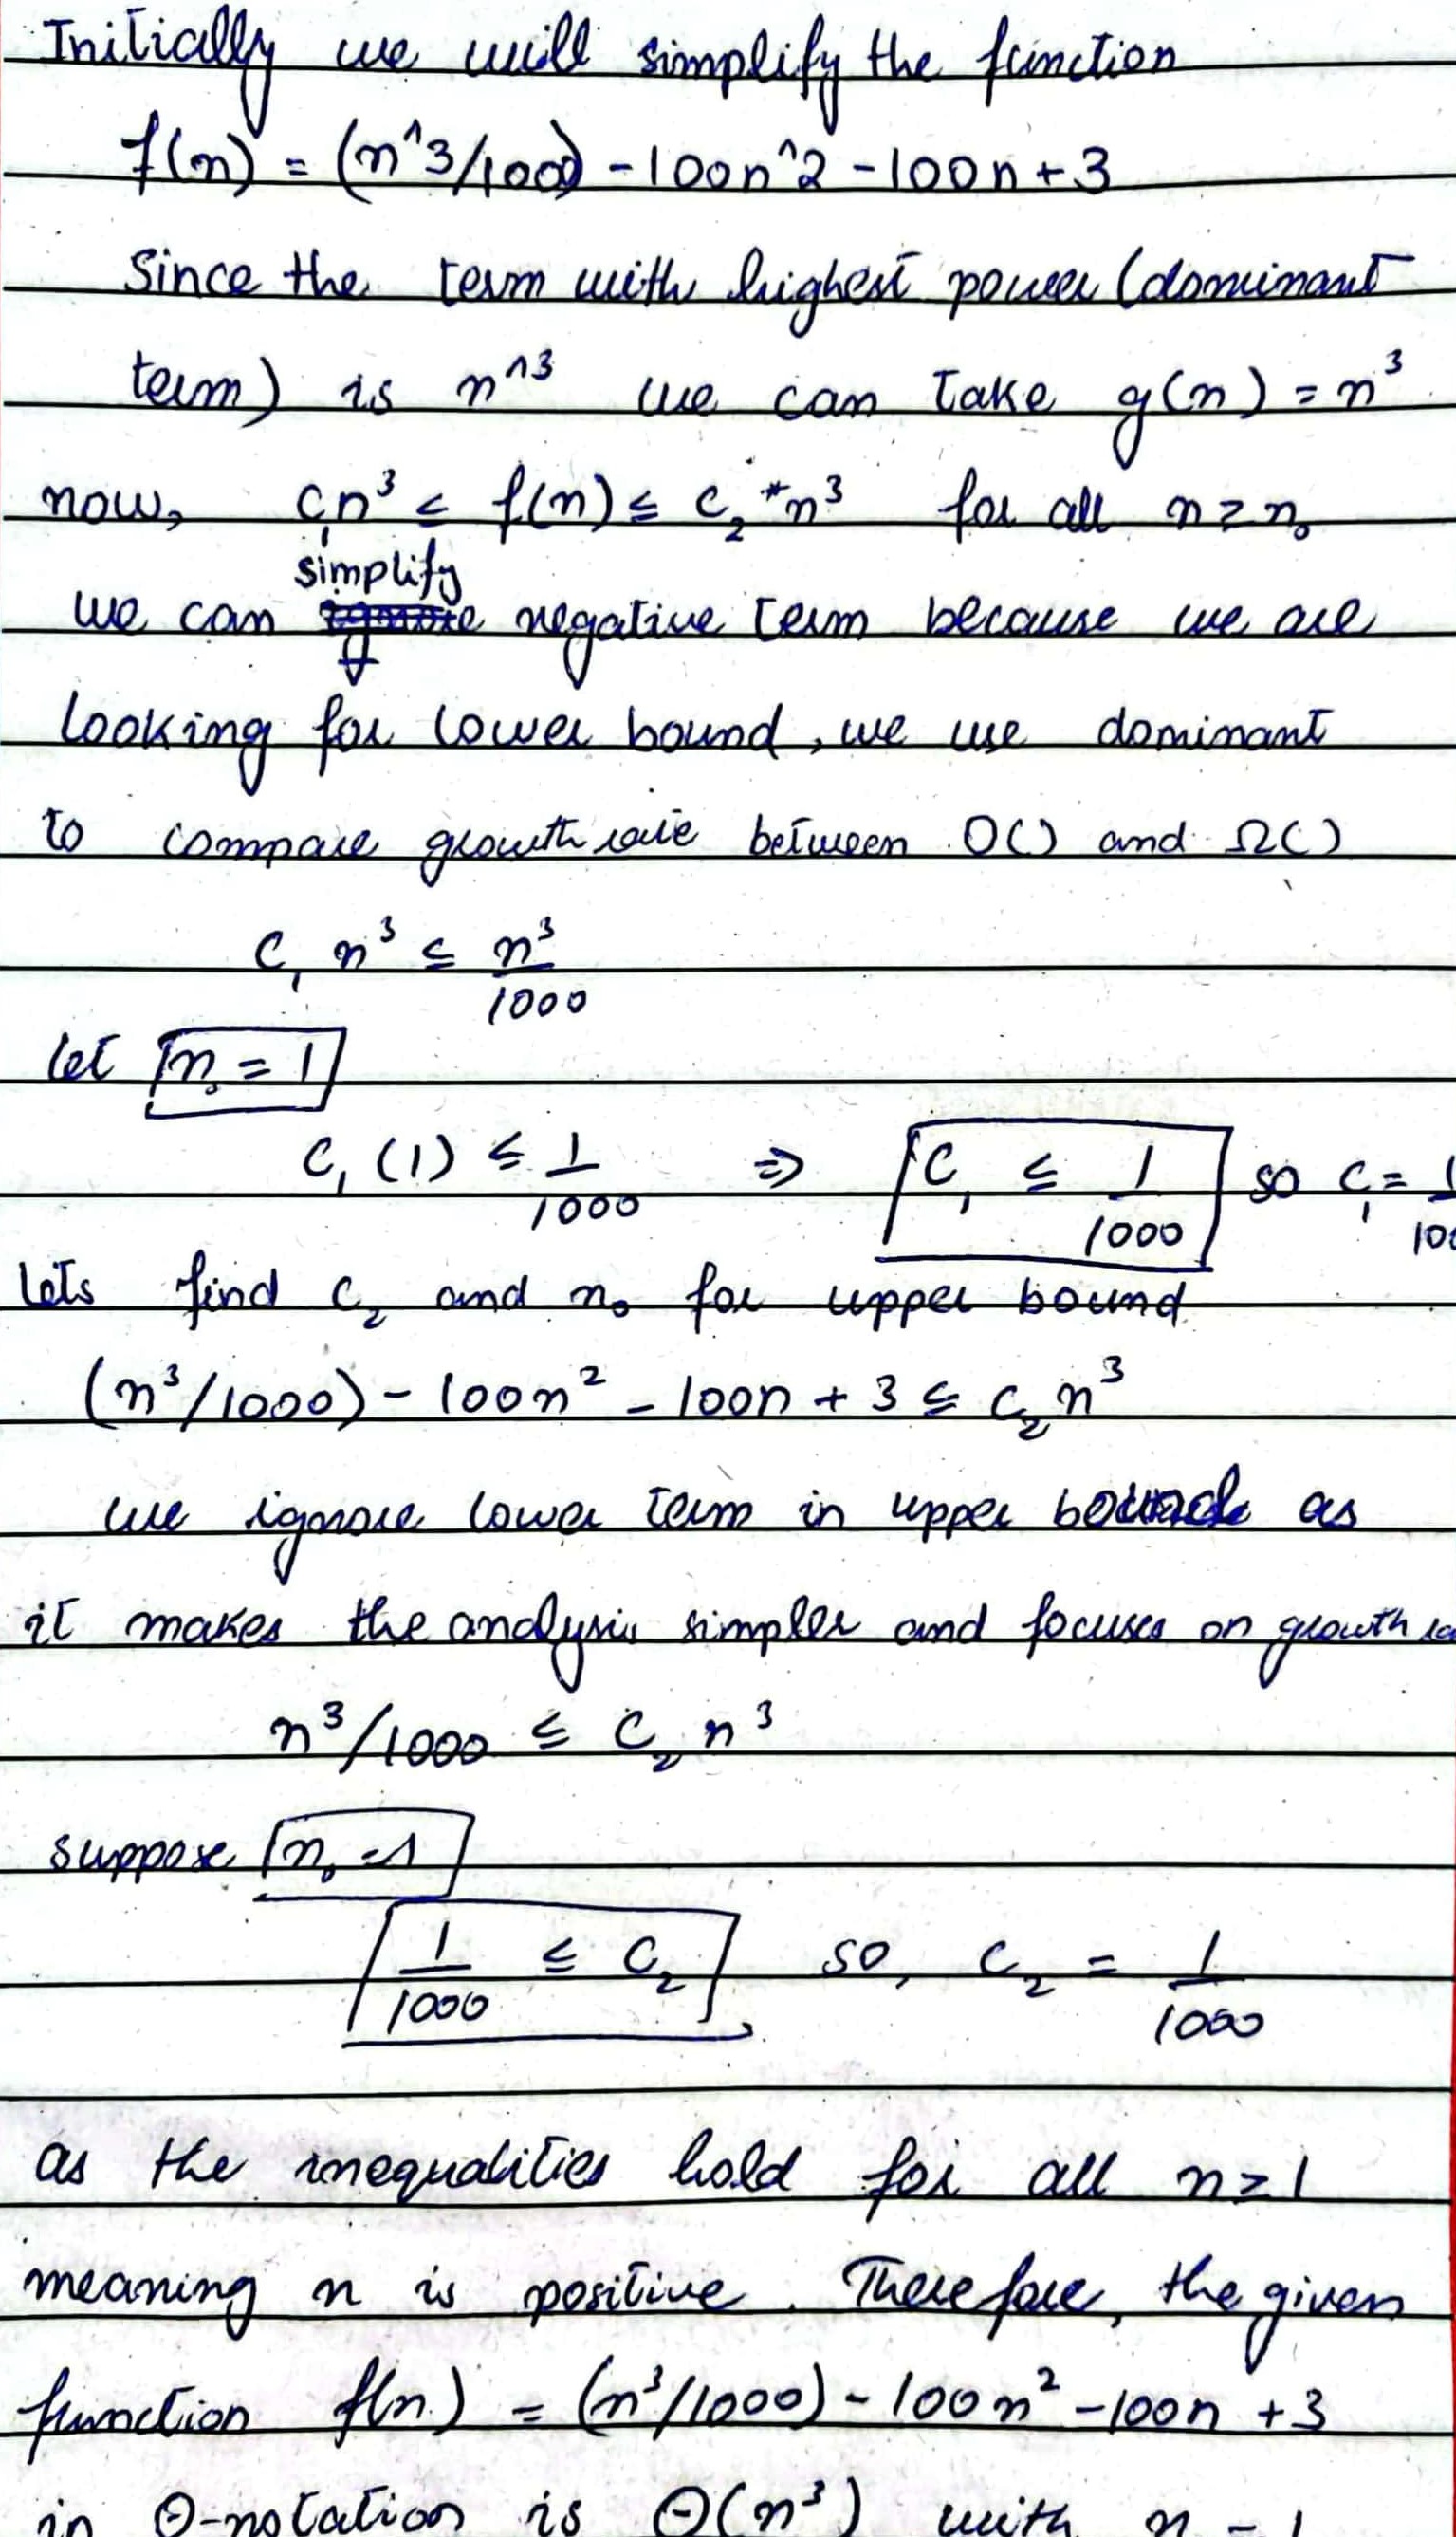 Initially we will simplify the function
f(n) = (n^3/1000) - 100n^2 - 100n + 3
Since the term with highest power (dominant
term) is n^3 we can take g(n) = n³
now, c₁n³ ≤ f(n) ≤ c₂*n³ for all n ≥ n₀
simplify
we can negative term because we are
looking for lower bound, we use dominant
to compare growth rate between O() and Ω()
C₁ n³ ≤ n³/1000
let n₀ = 1
C₁ (1) ≤ 1/1000 ⇒ C₁ ≤ 1/1000 so C₁ =
lets find c₂ and n₀ for upper bound
(n³/1000) - 100n² - 100n + 3 ≤ c₂n³
we ignore lower term in upper bound as
it makes the analysis simpler and focuses on growth
n³/1000 ≤ C₂ n³
suppose n₀ = 1
1/1000 ≤ C₂ so, C₂ = 1/1000
as the inequalities hold for all n ≥ 1
meaning n is positive. Therefore, the given
function f(n) = (n³/1000) - 100n² - 100n + 3
in Θ-notation is Θ(n³) with n = 1